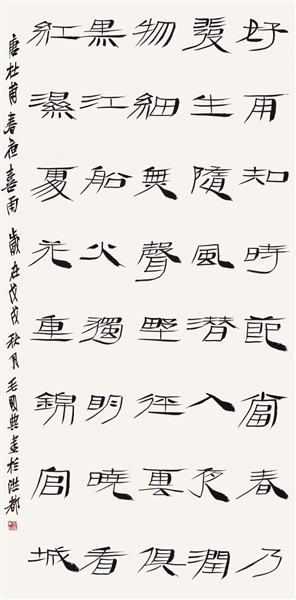 好雨知時節當春乃
發生隨風潛入夜潤
物細無聲野徑雲俱
黑江船火獨明曉看
紅濕處花重錦官城
唐杜甫春夜喜雨歲在戊戌秋月毛國典書於洪都